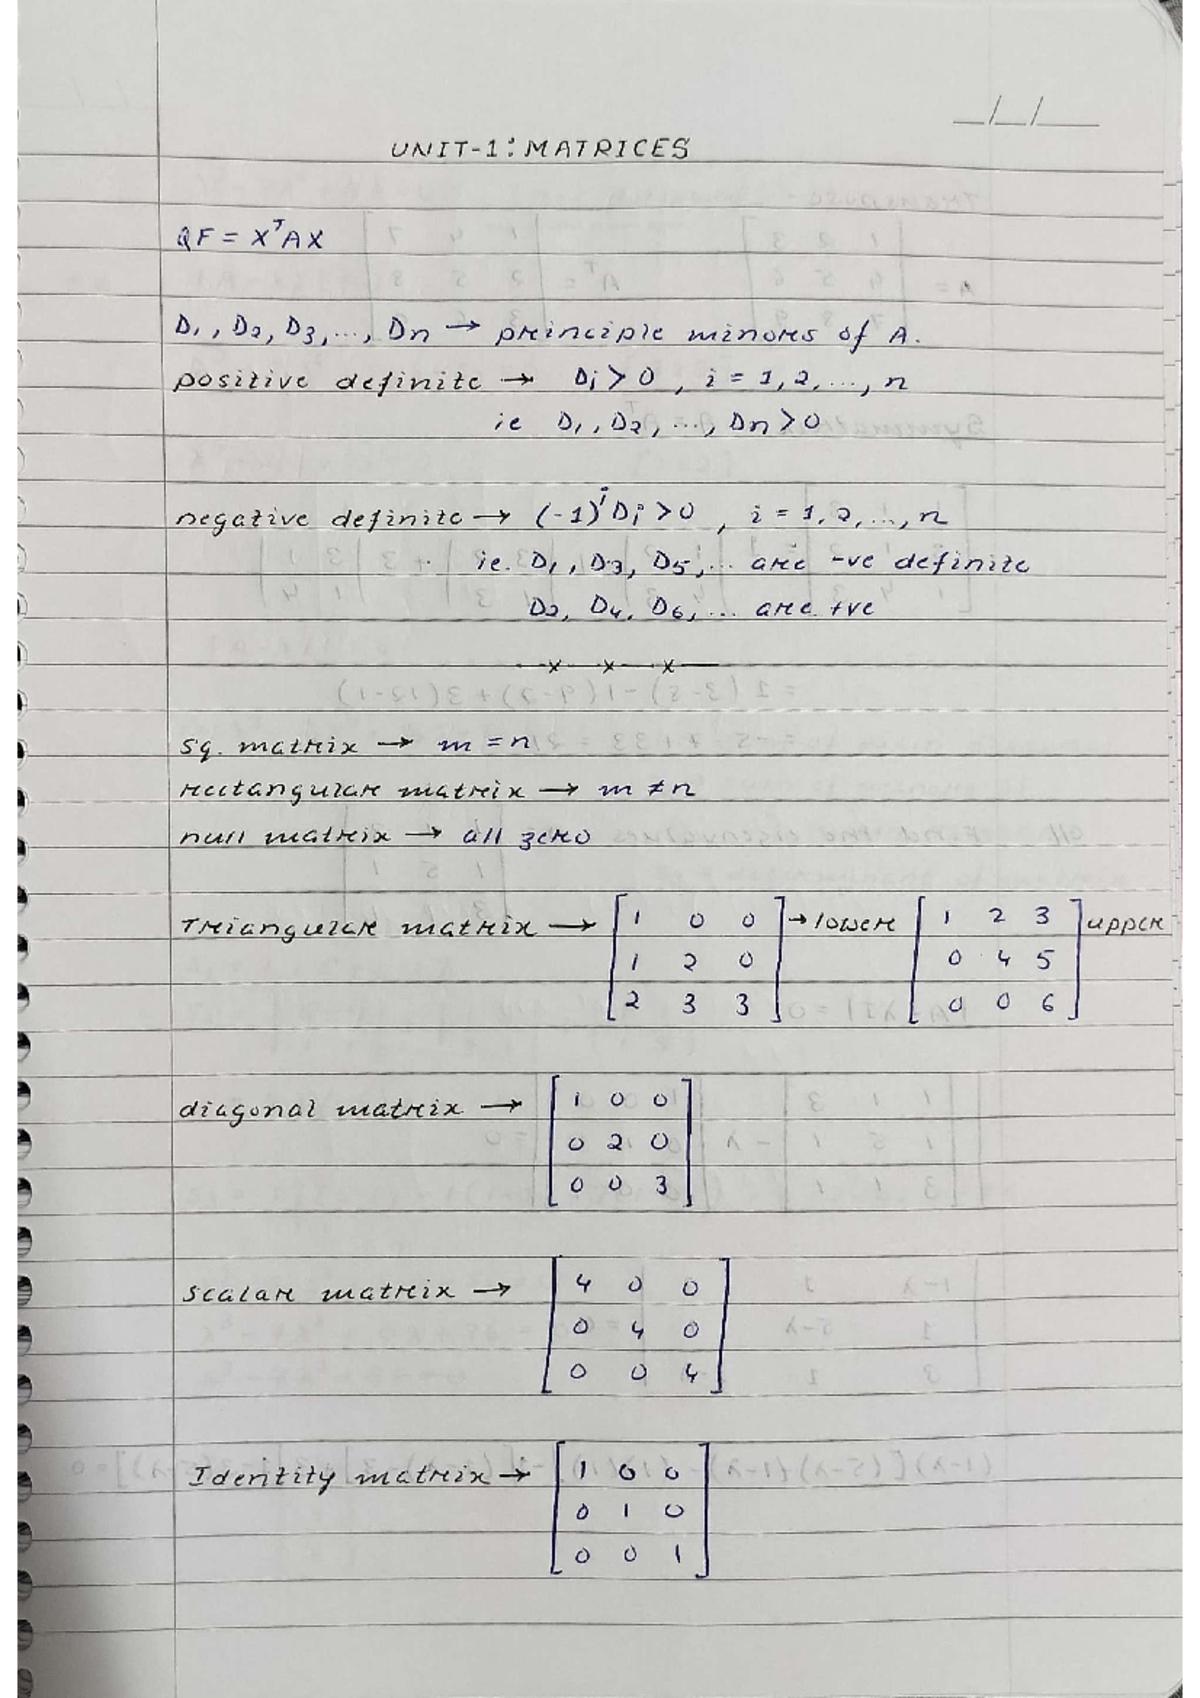 __/__/____
UNIT-1: MATRICES
QF = XᵀAX
D₁, D₂, D₃, ..., Dn → principle minors of A.
positive definite → Di > 0, i = 1, 2, ..., n
ie D₁, D₂, ..., Dn > 0
negative definite → (-1)ⁱ Di > 0, i = 1, 2, ..., n
ie. D₁, D₃, D₅, ... are -ve definite
D₂, D₄, D₆, ... are +ve
—x—x—x—
sq. matrix → m = n
rectangular matrix → m ≠ n
null matrix → all zero
Triangular matrix → [1 0 0] → lower [1 2 3] upper
1 2 0 0 4 5
2 3 3 0 0 6
diagonal matrix → [1 0 0]
0 2 0
0 0 3
scalar matrix → [4 0 0]
0 4 0
0 0 4
Identity matrix → [1 0 0]
0 1 0
0 0 1